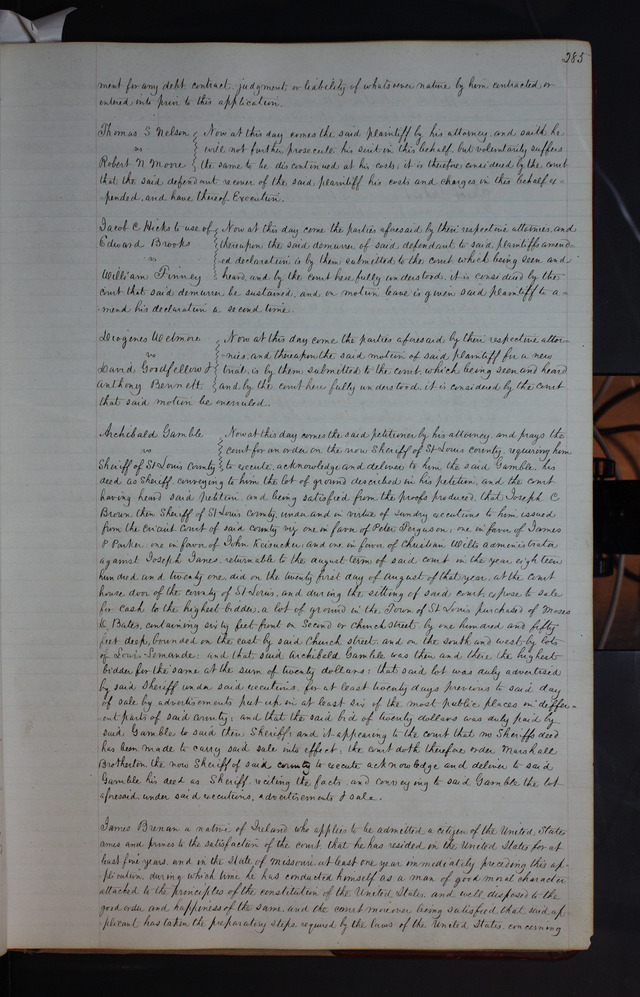 285
ment for any debt, contract, judgment, or liability of whatsoever nature by him contracted or
entered into prior to this application.
Thomas S Nelson
vs
Robert N Moore
Now at this day comes the said plaintiff by his attorney, and saith he
will not further prosecute his suit in this behalf, but voluntarily suffers
the same to be discontinued at his costs; it is therefore considered by the court
that the said defendant recover of the said plaintiff his costs and charges in this behalf ex-
-pended, and have thereof Execution.
Jacob C Hicks to use of
Edward Brooks
vs
William Finney
Now at this day come the parties aforesaid by their respective attornies, and
thereupon the said demurrer of said defendant to said plaintiffs amend-
ed declaration is by them submitted to the court which being seen and
heard and by the court here fully understood, it is considered by the
court that said demurrer be sustained, and on motion leave is given said plaintiff to a-
mend his declaration a second time.
Diogenes Wetmore
vs
David Goodfellow &
Anthony Bennett
Now at this day come the parties aforesaid by their respective attor-
-nies, and thereupon the said motion of said plaintiff for a new
trial, is by them submitted to the court, which being seen and heard
and by the court here fully understood, it is considered by the court
that said motion be overruled.
Archibald Gamble
vs
Sheriff of St Louis County
Now at this day comes the said petitioner by his attorney, and prays the
court for an order on the now Sheriff of St Louis county, requiring him
to execute, acknowledge and deliver to him the said Gamble, his
deed as Sheriff conveying to him the lot of ground described in his petition, and the court
having heard said petition, and being satisfied from the proofs produced, that Joseph C
Brown then Sheriff of St Louis county, under and in virtue of sundry executions to him issued
from the circuit court of said county viz, one in favor of Peter Ferguson; one in favor of James
P Parker; one in favor of John and one in favor of Christian Wilts administrator
against Joseph James, returnable to the august term of said court in the year eighteen
hundred and twenty one, did on the twenty first day of August of that year, at the court
house door of the county of St Louis, and during the setting of said court, expose to sale
for cash to the highest bidder, a lot of ground in the Town of St Louis purchased of Moses
Bates, containing sixty feet front on Second or Church street by one hundred and fifty
feet deep, bounded on the east by said Church street, and on the south and west by lots
of Louis and that said Archibald Gamble was then and there the highest
bidder for the same at the sum of twenty dollars; that said lot was duly advertised
by said Sheriff under said executions, for at least twenty days previous to said day
of sale by advertisements put up in at least six of the most public places in differ-
-ent parts of said county; and that the said bid of twenty dollars was duly paid by
said Gamble to said then Sheriff; and it appearing to the court that no Sheriffs deed
has been made to carry said sale into effect; the court doth therefore order Marshall
Brotherton the now Sheriff of said county to execute acknowledge and deliver to said
Gamble his deed as Sheriff reciting the facts, and conveying to said Gamble the lot
aforesaid under said executions, advertisements & sale.
James Brenan a native of Ireland who applies to be admitted a citizen of the United States
comes and proves to the satisfaction of the court that he has resided in the United States for at
least five years, and in the State of Missouri at least one year immediately preceding this ap-
plication, during which time he has conducted himself as a man of good moral character
attached to the principles of the constitution of the United States, and well disposed to the
good order and happiness of the same, and the court moreover being satisfied that said ap-
plicant has taken the preparatory steps required by the laws of the United States, concerning